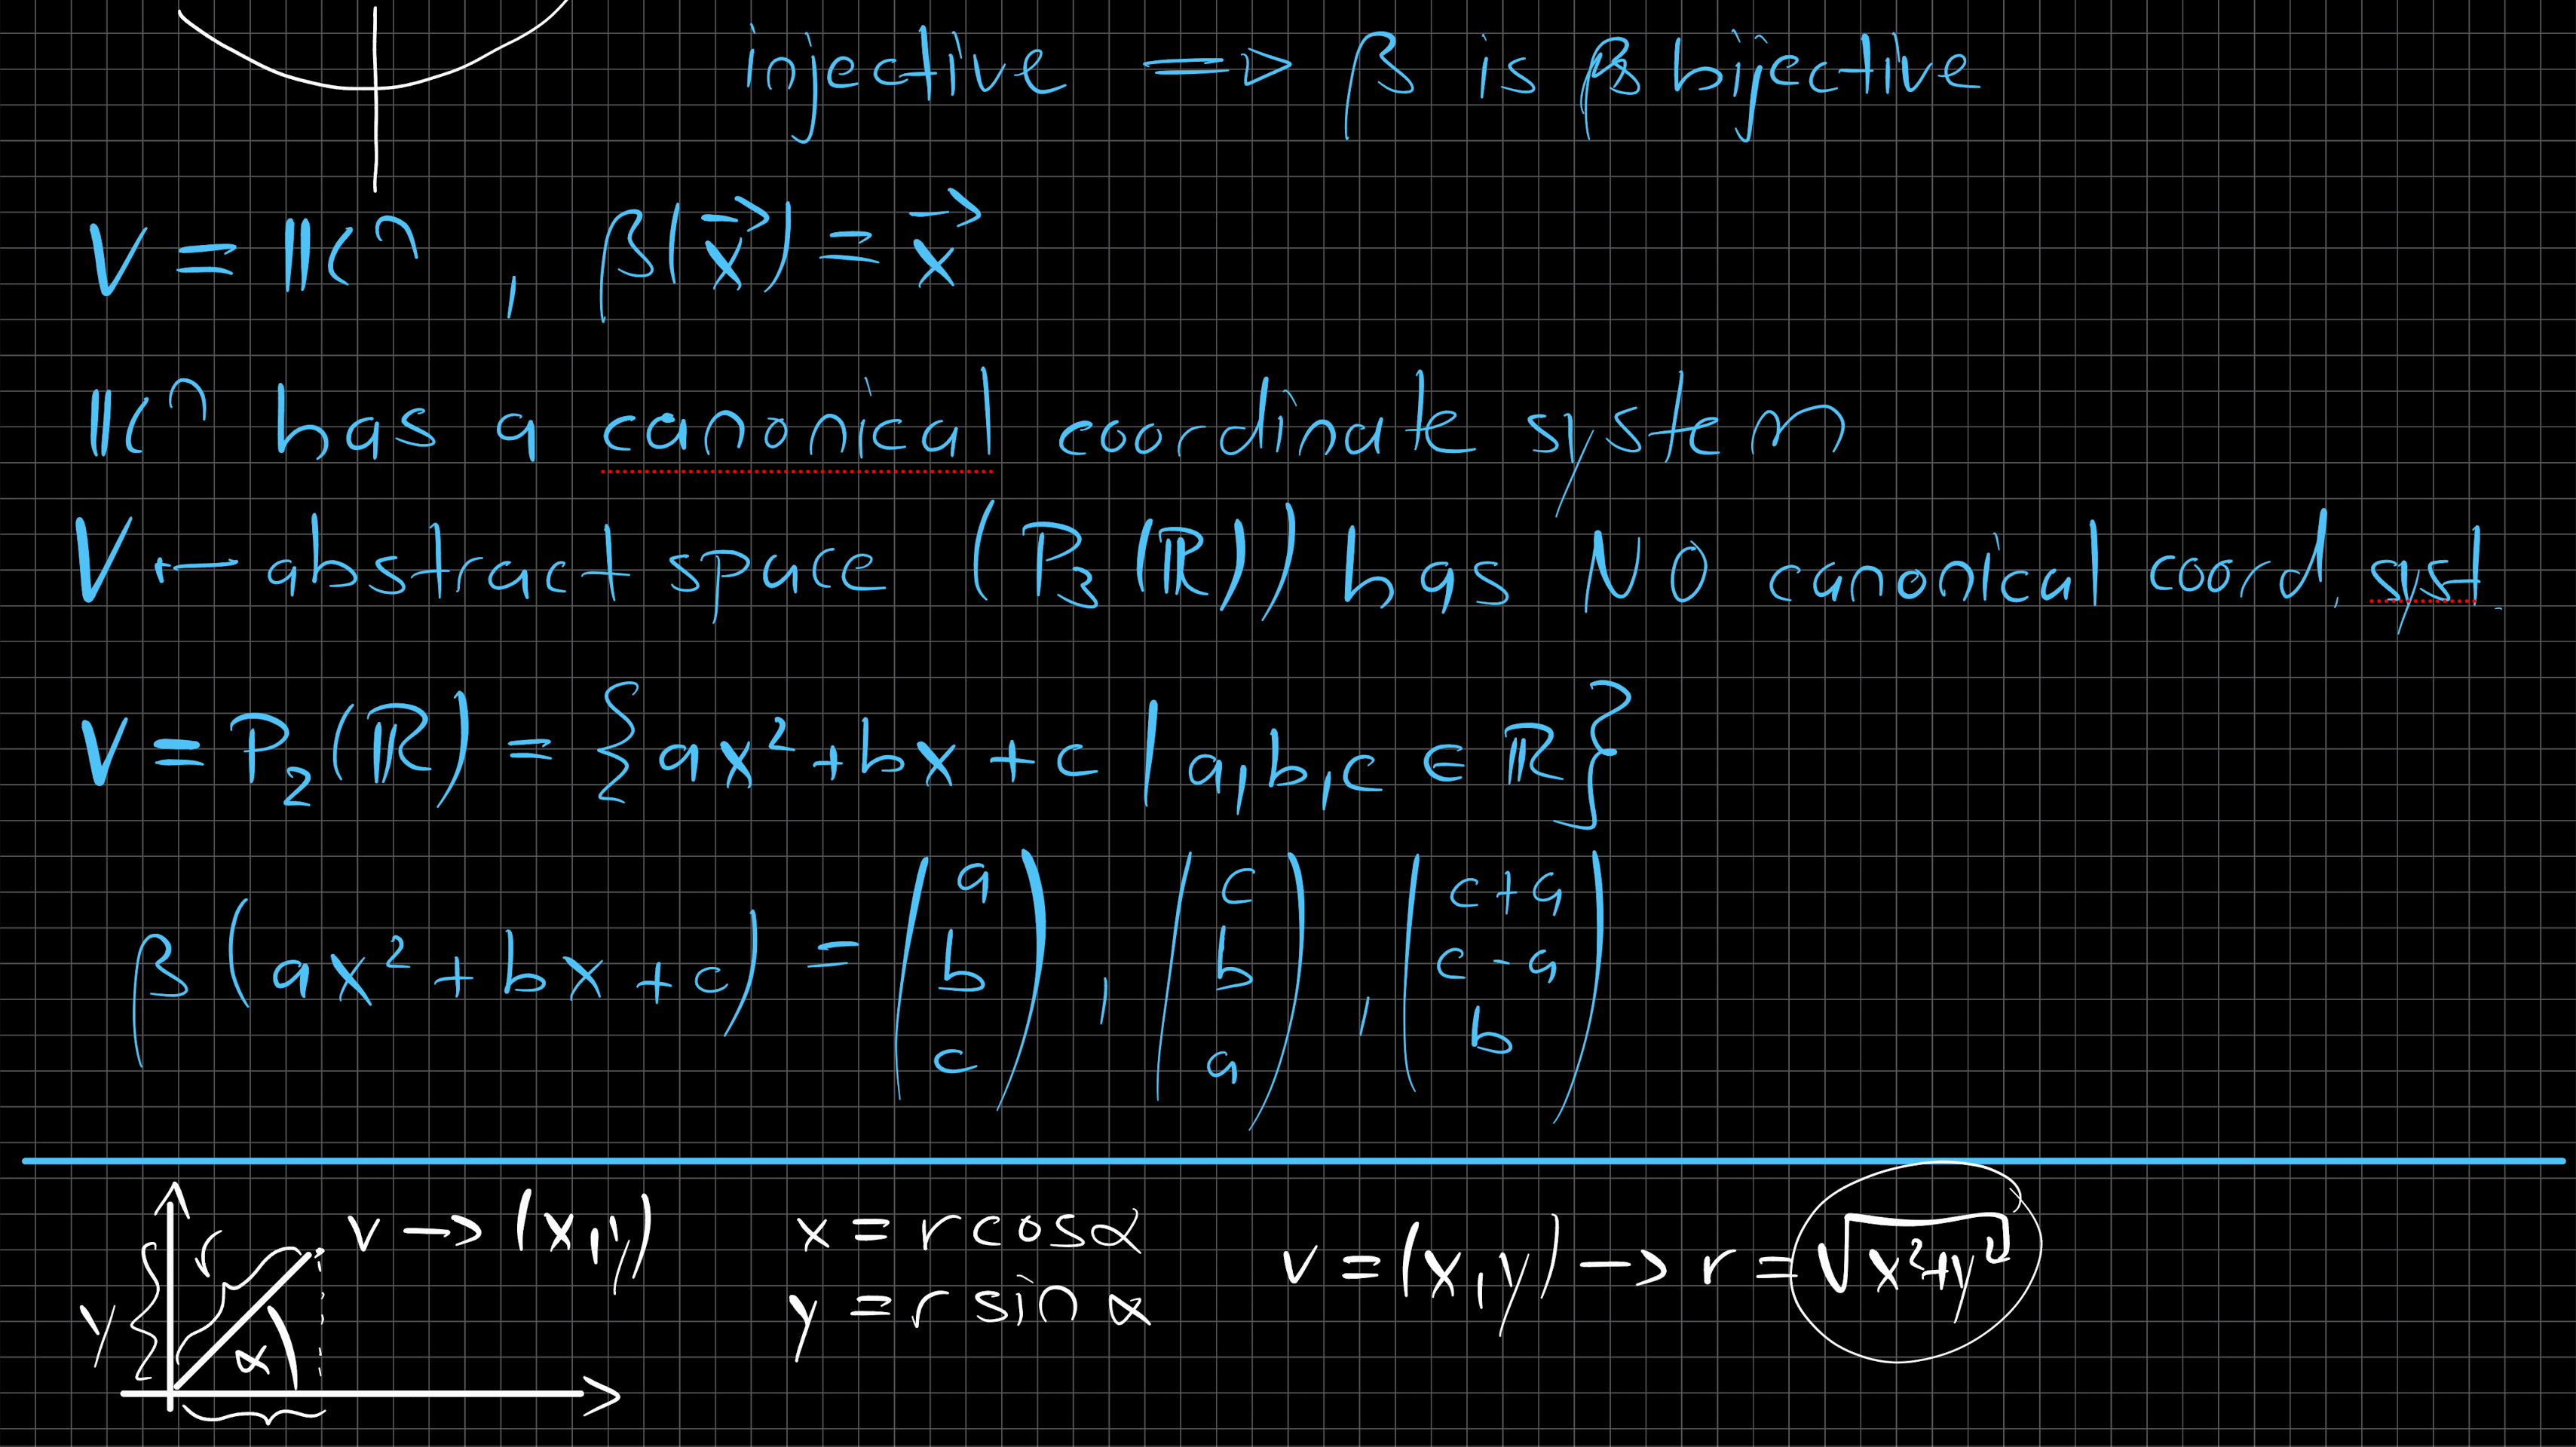 injective => β is bijective
V = K^n , β(x⃗) = x⃗
K^n has a canonical coordinate system
V ← abstract space (P₃(ℝ)) has NO canonical coord. syst.
V = P₂(ℝ) = {ax² + bx + c | a, b, c ∈ ℝ}
β(ax² + bx + c) = (a b c), (c b a), (c+a c-a b)
v -> (x, y) x = r cos α v = (x, y) -> r = √(x²+y²)
y = r sin α
r
y
α